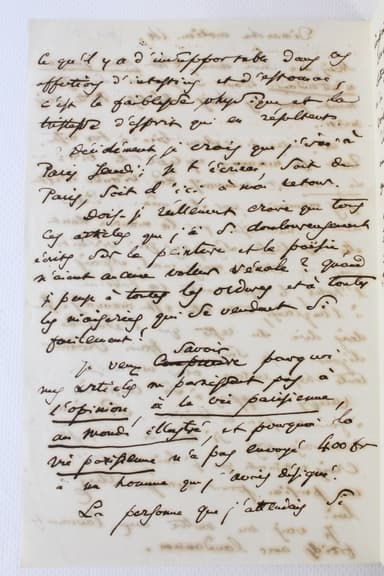 ce qu'il y a d'insupportable dans ces
affections d'intestins et d'estomac,
c'est la faiblesse physique et la
tristesse d'esprit qui en résultent.
Décidément, je crois que j'irai à
Paris Jeudi; je t'écrirai, soit de
Paris, soit d'ici, à mon retour.
Dois-je réellement croire que tous
ces articles que j'ai si douloureusement
écrits sur la peinture et la poésie
n'aient aucune valeur vénale? Quand
je pense à toutes les ordures et à toutes
les niaiseries qui se vendent si
facilement!
savoir
Je veux comprendre pourquoi
mes articles ne paraissent pas à
l'opinion, à la vie parisienne,
au monde illustré, et pourquoi la
vie parisienne n'a pas envoyé 400 fr
à un homme que j'avais désigné.
La personne que j'attendais si